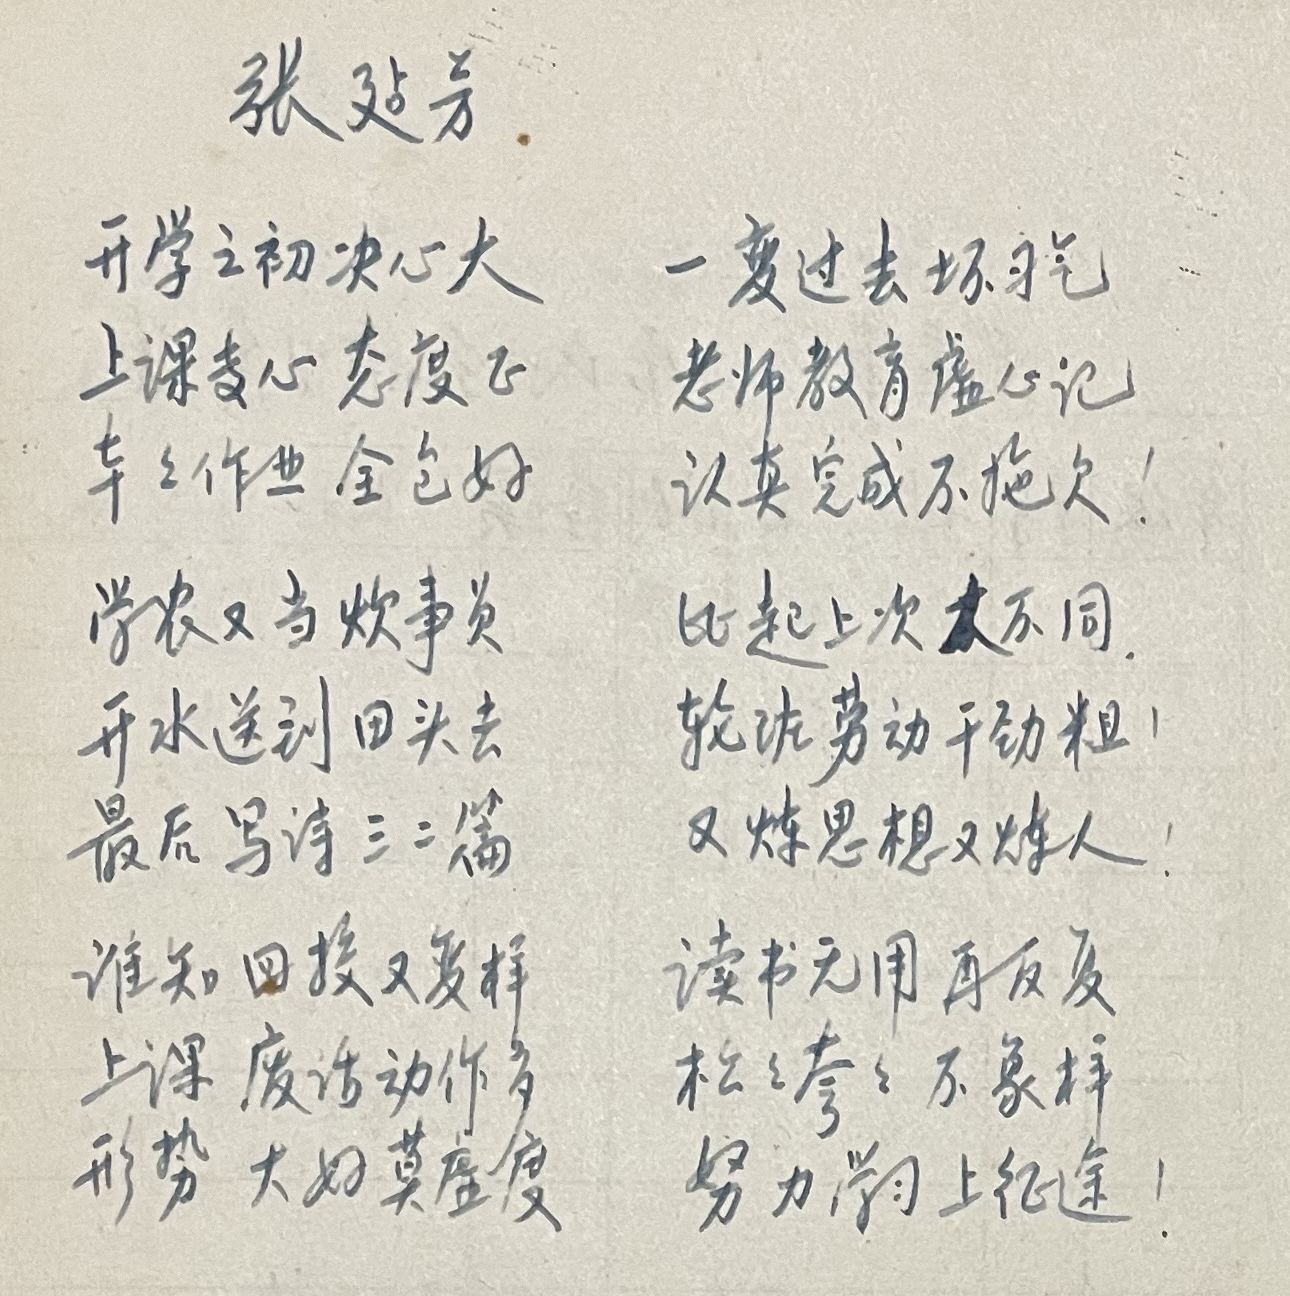 张延芳
开学之初决心大 一变过去坏习气
上课专心态度正 老师教育虚心记
车々作业全包好 认真完成不拖欠！
学农又当炊事员 比起上次大不同.
开水送到田头去 轮流劳动干劲粗！
最后写诗三二篇 又炼思想又炼人！
谁知回校又变样 读书无用再反复
上课废话动作多 松々夸々不象样
形势大好莫虚度 努力学习上征途！